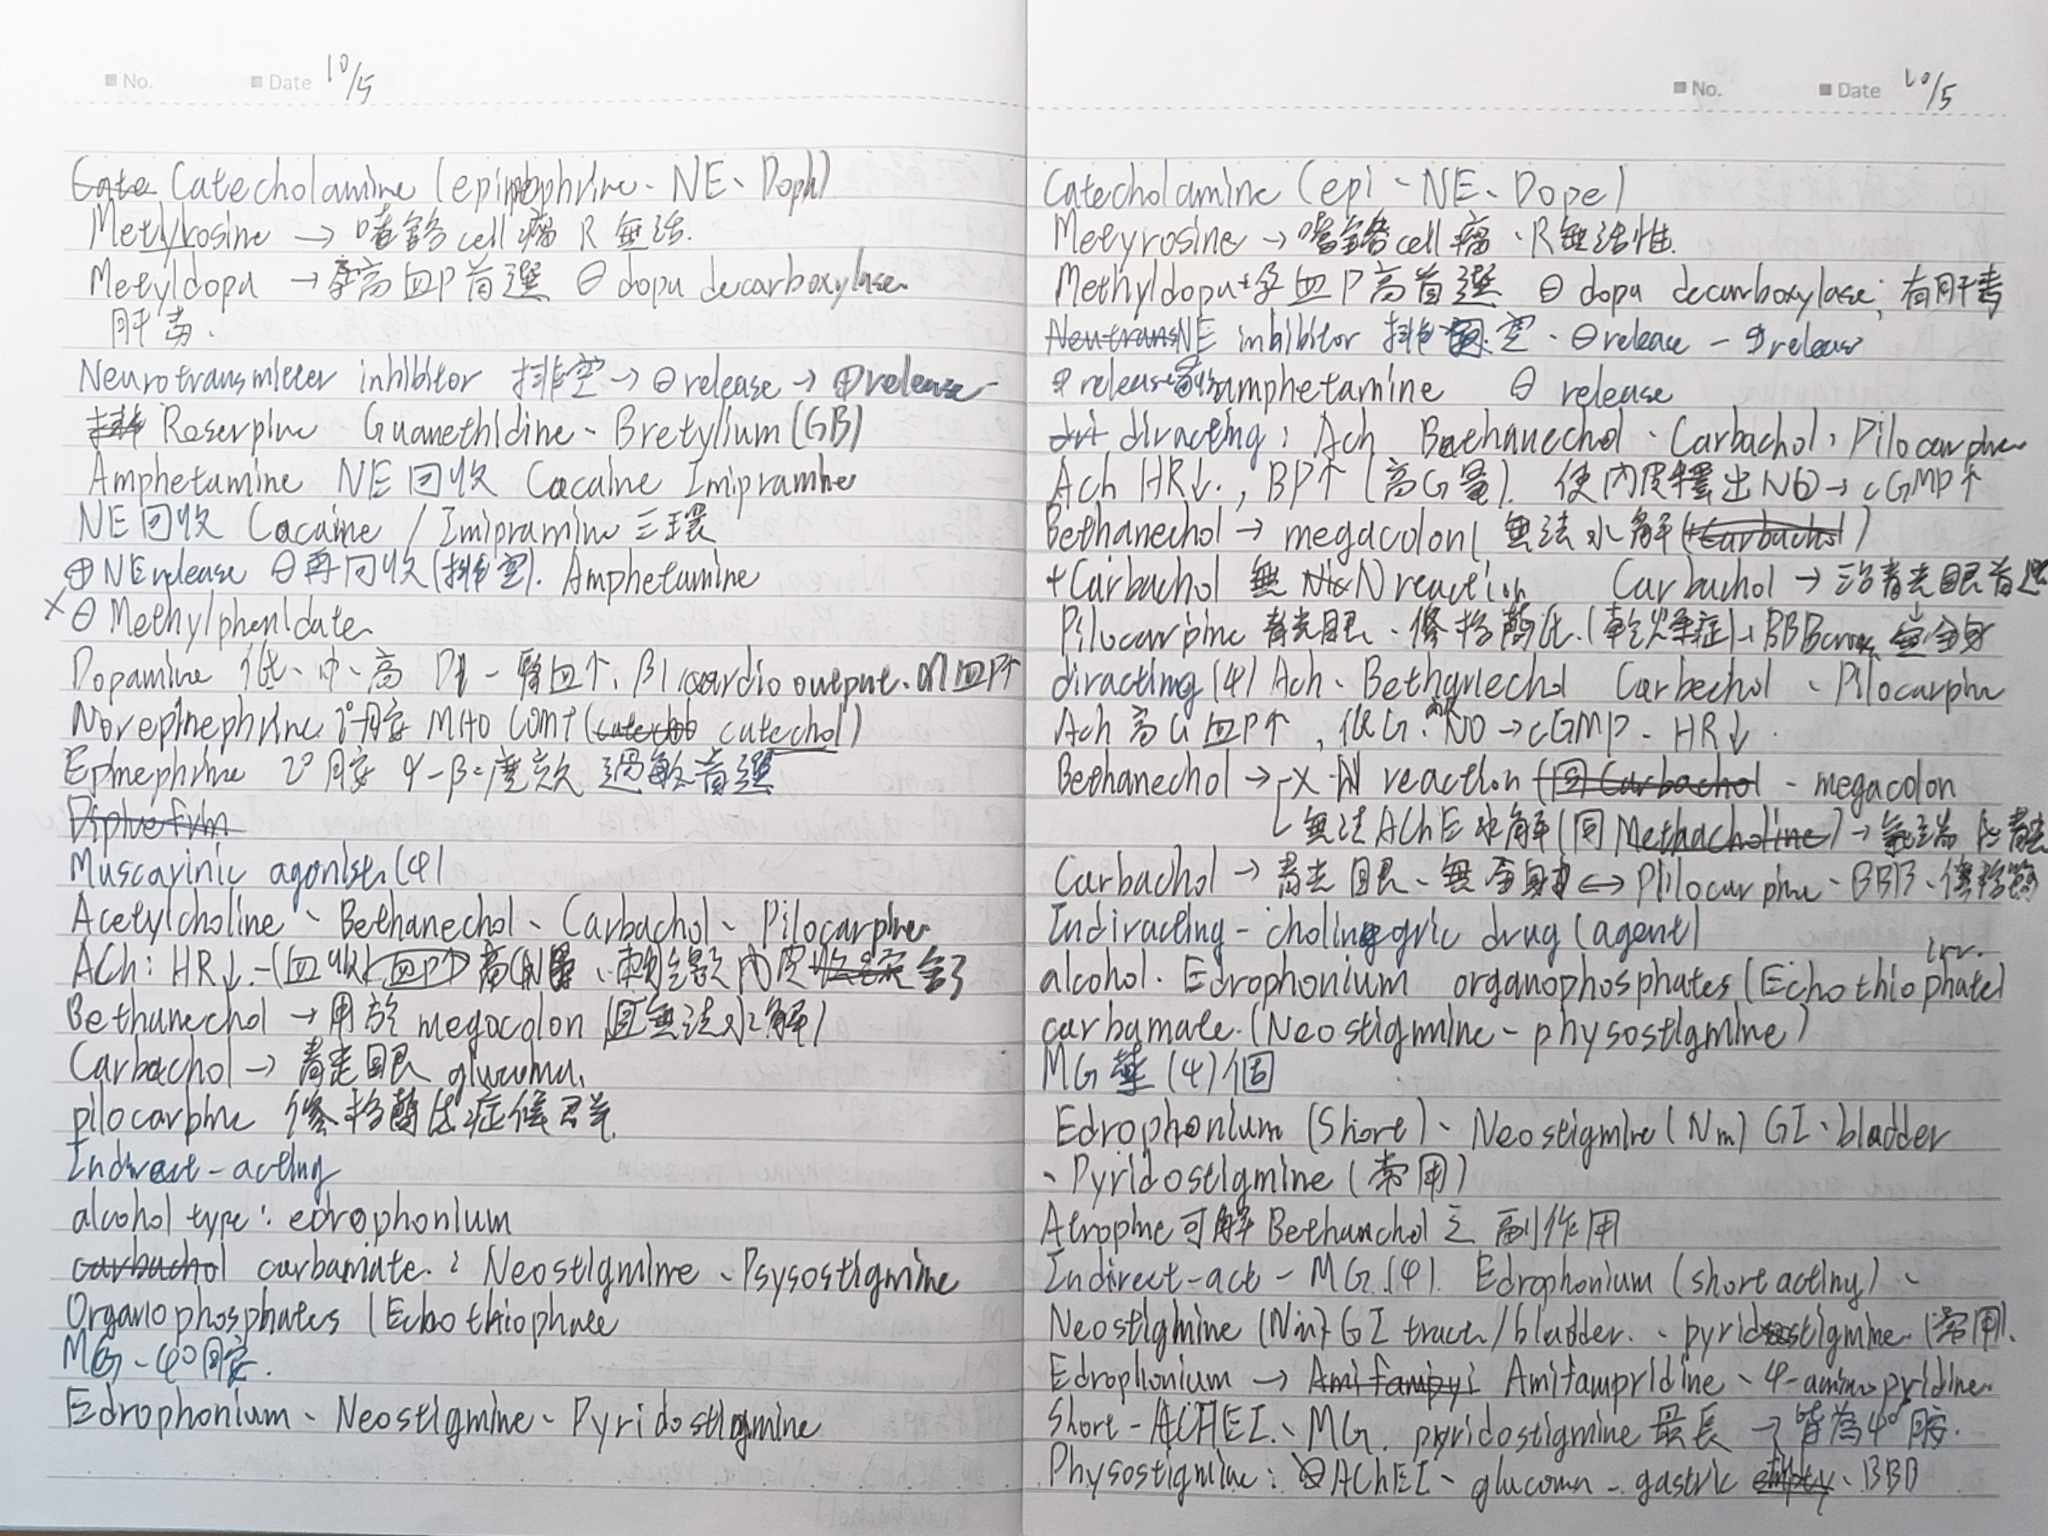 No. Date 10/5
Catecholamine (epinephrine、NE、Dopa)
Metyrosine → 嗜鉻cell瘤 R無活.
Metyldopa → 孕高血P首選 ⊖ dopa decarboxylase.
肝毒.
Neurotransmitter inhibitor 排空→⊖release→⊕release
排 Reserpine Guanethidine、Bretylium(GB)
Amphetamine NE回收 Cocaine Imipramine
NE回收 Cocaine / Imipramine 三環
⊕NErelease ⊖再回收(排空). Amphetamine
×⊖ Methylphenidate
Dopamine 低、中、高 D1-腎血↑、β1 cardio output、α1血P↑
Norepinephrine 2°胺 MAO COMT (catechol)
Epinephrine 2°胺 α-β=度 過敏首選
Muscarinic agonist.(4)
Acetylcholine、Bethanechol、Carbachol、Pilocarpine
ACh: HR↓-(血P↑) 高 、刺激內皮
Bethanechol → 用於 megacolon (且無法水解)
Carbachol → 青光眼 glucoma.
pilocarpine 修格蘭氏症候群.
Indirect-acting
alcohol type: edrophonium
carbachol carbamate: Neostigmine、Psysostigmine
Organophosphates (Echothiophate
MG-4°胺.
Edrophonium、Neostigmine、Pyridostigmine
No. Date 10/5
Catecholamine (epi、NE、Dope)
Metyrosine → 嗜鉻cell瘤、R無活性.
Methyldopa→孕血P高首選 ⊖ dopa decarboxylase; 有肝毒
NE inhibitor 排空、⊖release-⊕release
⊕release amphetamine ⊖ release
diracting: Ach Bethanechol、Carbachol、Pilocarpine
Ach HR↓., BP↑ (高G量). 使內皮釋出NO→cGMP↑
Bethanechol → megacolon( 無法水解(+Carbachol)
+Carbachol 無 N reaction Carbachol → 治青光眼首選
Pilocarpine 青光眼、修格蘭氏.(乾燥症)→BBBcross 全身
diracting (4) Ach、Bethanechol Carbechol、Pilocarpine
Ach 高G 血P↑, 低G: NO→cGMP、HR↓.
Bethanechol →-× N reaction (同Carbachol - megacolon
無法AChE水解(同Methacholine)→氣喘
Carbachol → 青光眼、無全身 ↔ Pilocarpine、BBB、修格蘭
Indiracting-cholinergric drug (agent)
alcohol. Edrophonium organophosphates (Echothiophate) irr.
carbamate.(Neostigmine-physostigmine)
MG藥(4)個
Edrophonium (Short)、Neostigmine (Nm) GI、bladder
、Pyridostigmine (常用)
Atropine可解Bethanchol之 副作用
Indirect-act-MG.(4). Edrophonium (short acting)、
Neostigmine (Nm) GI tract/bladder.、pyridostigmine.(常用).
Edrophonium → Amifampyi Amifampridine、4-aminopridine
Short-AChEI、MG. pyridostigmine最長→皆為4°胺.
Physostigmine: AChEI、glucoma-gastric empty、BBB